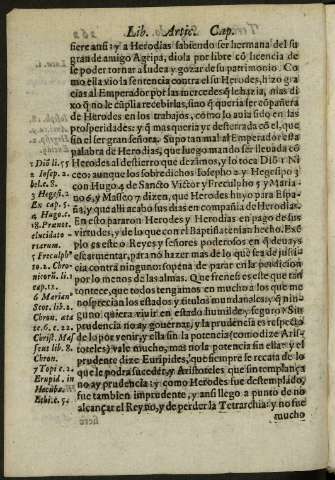 Lib. Artic. Cap.
fiere ansi: y a Herodias sabiendo ser hermana del su
gran de amigo Agripa, diola por libre cõ licencia de
le poder tornar a Iudea y gozar de su patrimonio. Co
mo ella vio la sentencia contra el su Herodes, hizo gra
cias al Emperador por las mercedes q̃ le hazia, mas di
xo q̃ no le cũplia recebirlas, sino q̃ queria ser cõpañera
de Herodes en los trabajos, como lo auia sido en las
prosperidades: y q̃ mas queria yr desterrada cõ el, que
sin el ser gran señora. Supo tan mal al Emperador esta
palabra de Herodias, que luego mando ser lleuada cõ
Herodes al destierro que dezimos, y lo toca Diõ 1 Ni
ceo: aunque los sobredichos Iosepho 2 y Hegesipo 3
con Hugo 4 de Sancto Victor y Freculpho 5 y Maria-
no 6, y Masseo 7 dizen, que Herodes huyo para Espa-
ña, y que alli acabo sus dias en compañia de Herodias.
En esto pararon Herodes y Herodias en pago de sus
virtudes, y de lo que con el Baptista tenian hecho. Exẽ
plo es este o Reyes y señores poderosos en q̃ deuays
escarmentar, para no hazer mas de lo que sea de justi-
cia contra ninguno: so pena de parar en la perdicion
por lo menos de las almas. Que frenesi es este que tan
tontece, que todos tengamos en mucho a los que me
nosprecian los estados y titulos mundanales, y q̃ nin-
guno quiera viuir en estado humilde y seguro? Sin
prudencia no ay gouernar, y la prudencia es respecto
de lo por venir, y ella sin la potencia (como dize Aris-
toteles) vale mucho, mas no la potencia sin ella: y el
prudente dize Euripides, que siempre se recata de lo
que le podra suceder, y Aristoteles que sin templança
no ay prudencia: y como Herodes fue destemplado,
fue tambien imprudente, y ansi llego a punto de no
alcançar el Reyno, y de perder la Tetrarchia: y no fue
mucho
1 Diõ li. 55
2 Iosep. 2.
bel. c. 8.
3 Hegesi. 2
Ex cap. 5.
4 Hugo. c.
18. Prænot.
elucidato
rierum.
5 Freculp-
ho. 2. Chro-
nicorũ. li. 1
cap. 12.
6 Marian
Scot. lib. 2.
Chron. ata
te. 6. c. 22.
Christ. Ma
seus lib. 8.
Chron.
7 Topi c. 2.
Eurpid. in
Hecuba.
Ethi. c. 5.